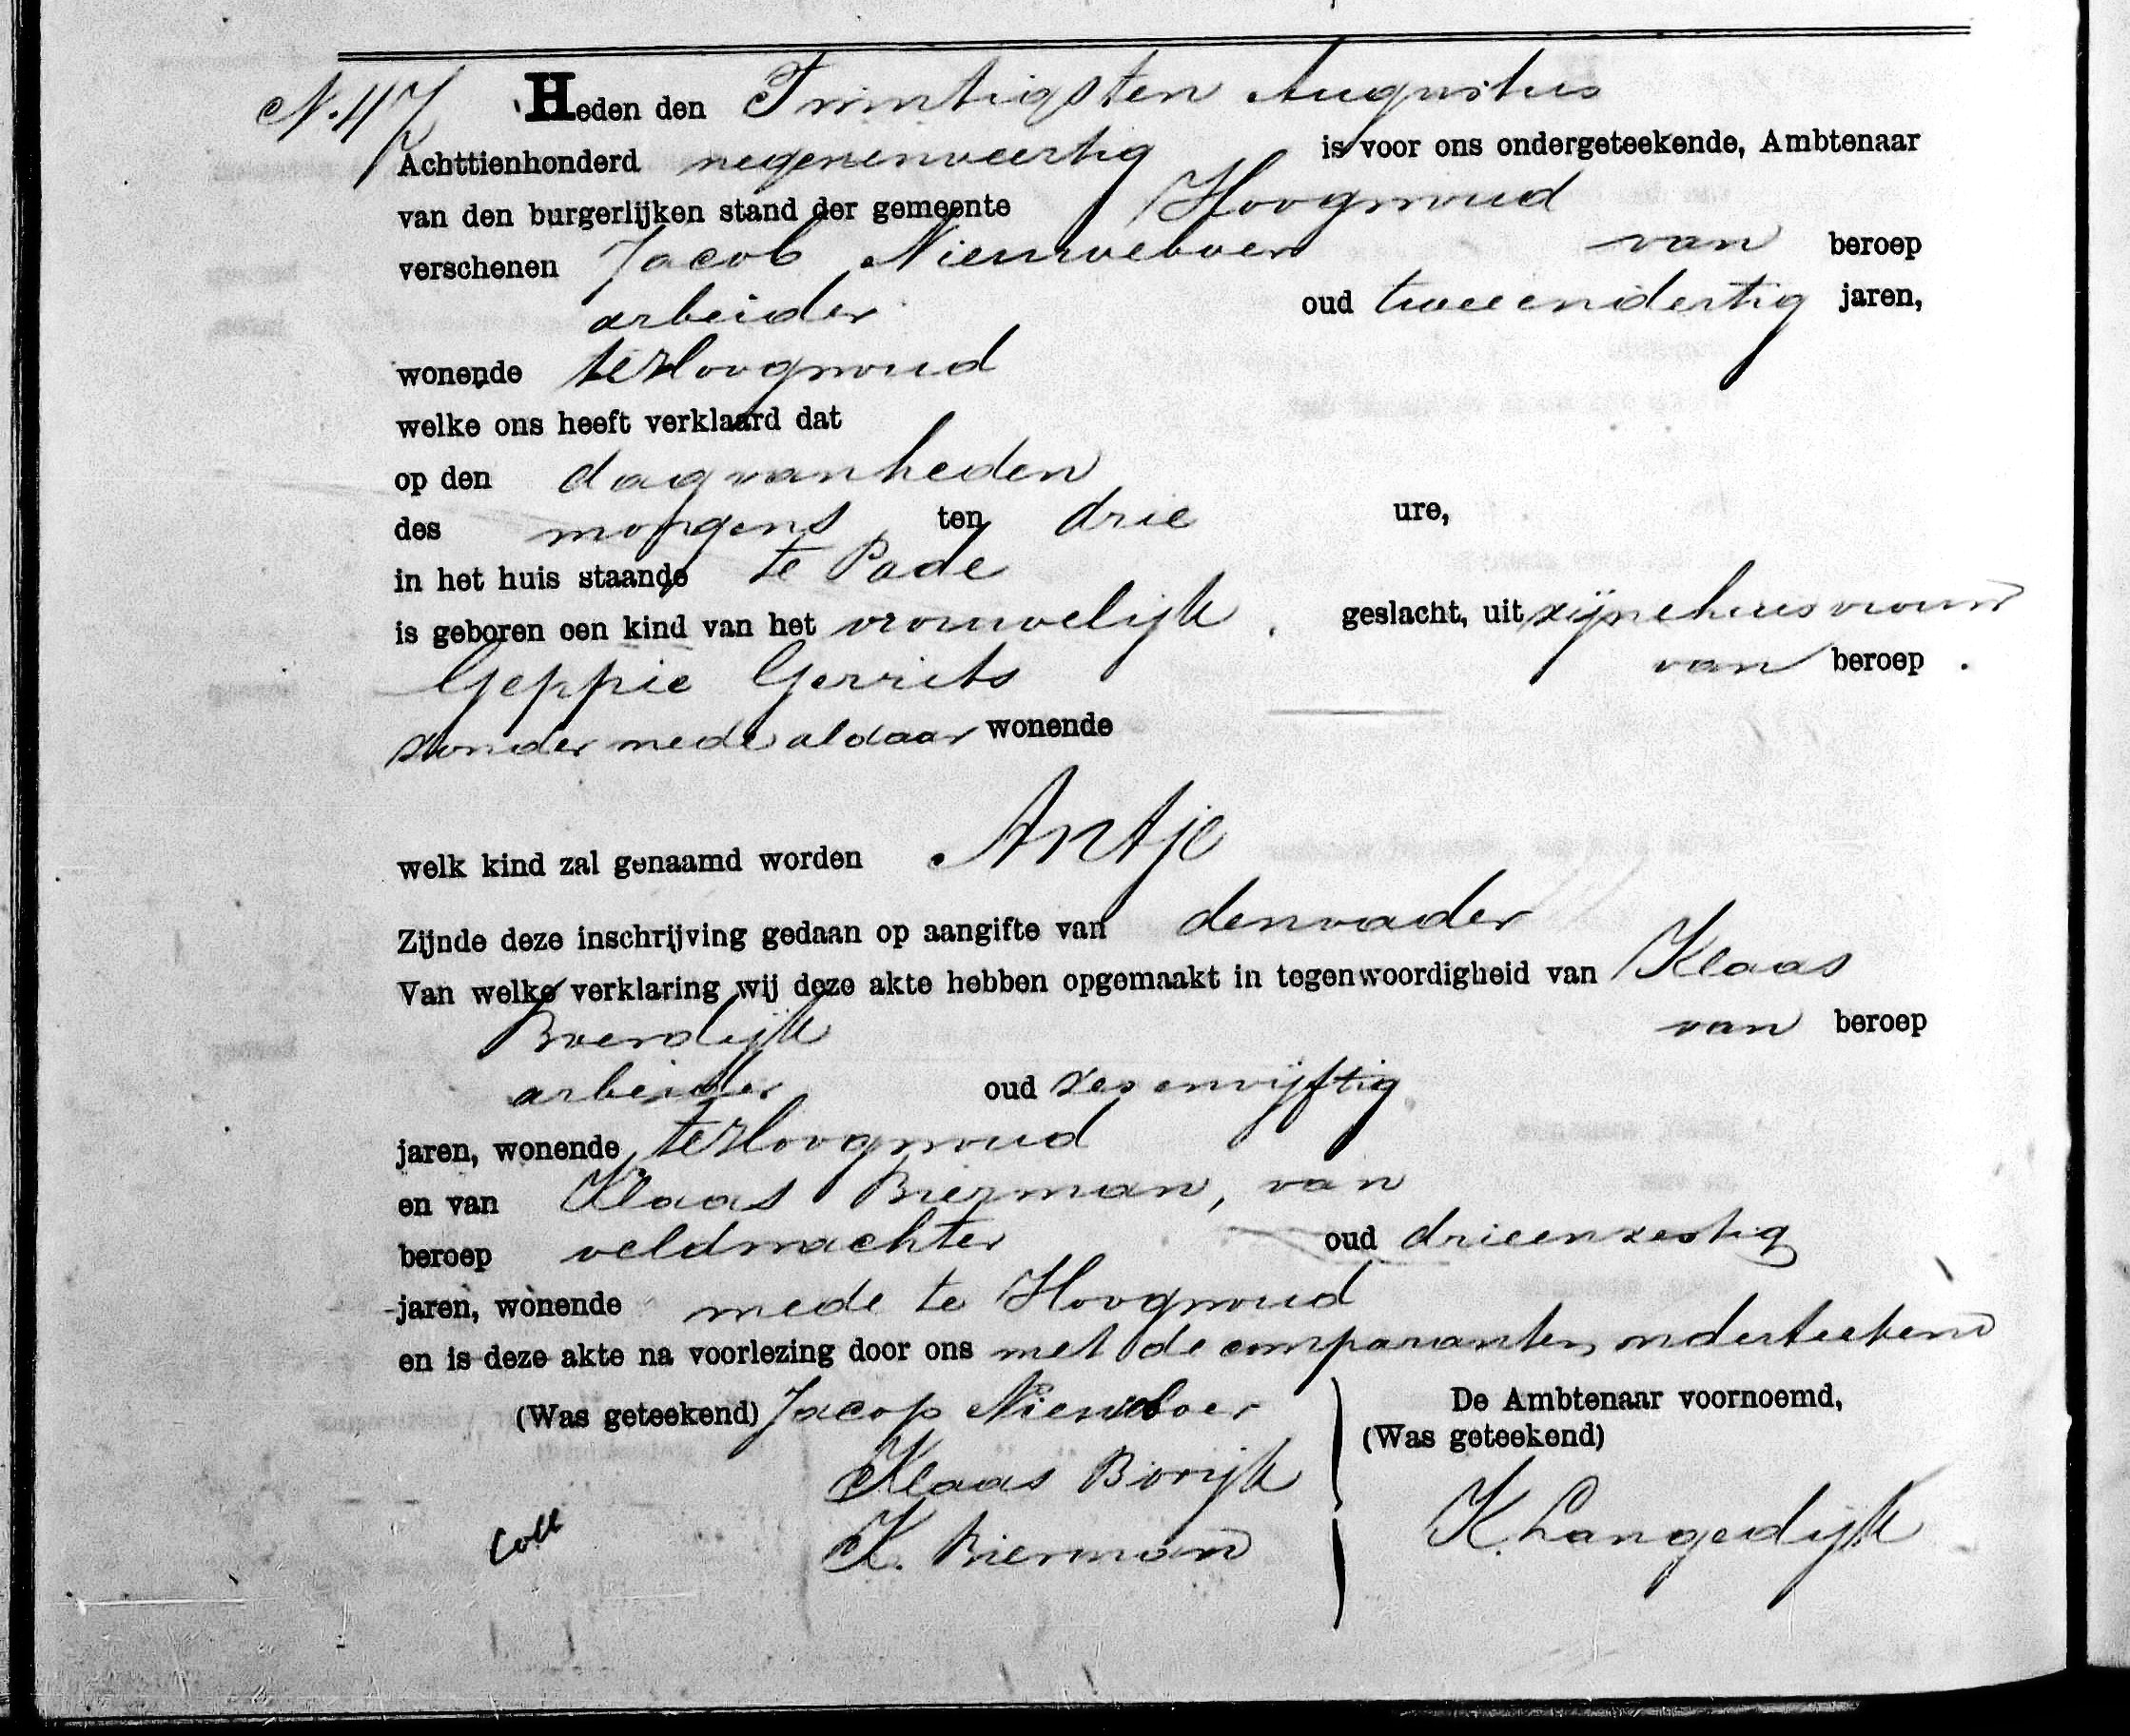 N. 47 Heden den Twintigsten Augustus
Achttienhonderd negenenveertig is voor ons ondergeteekende, Ambtenaar
van den burgerlijken stand der gemeente Hoogwoud
verschenen Jacob Nieuweboer van beroep
arbeider oud tweeendertig jaren,
wonende te Hoogwoud
welke ons heeft verklaard dat
op den dag van heden
des morgens ten drie ure,
in het huis staande te Pade
is geboren een kind van het vrouwelijk geslacht, uit zijne huisvrouw
Geppie Gerrits van beroep
zonder mede aldaar wonende
welk kind zal genaamd worden Antje
Zijnde deze inschrijving gedaan op aangifte van den vader
Van welke verklaring wij deze akte hebben opgemaakt in tegenwoordigheid van Klaas
Boerdijk van beroep
arbeider oud zesenvijftig
jaren, wonende te Hoogwoud
en van Klaas Bierman, van
beroep veldwachter oud drieenzestig
jaren, wonende mede te Hoogwoud
en is deze akte na voorlezing door ons met de comparanten onderteekend
(Was geteekend) Jacop Nieuwboer De Ambtenaar voornoemd,
(Was geteekend)
Klaas Borijk
K. Bierman K. Langedijk
Coll